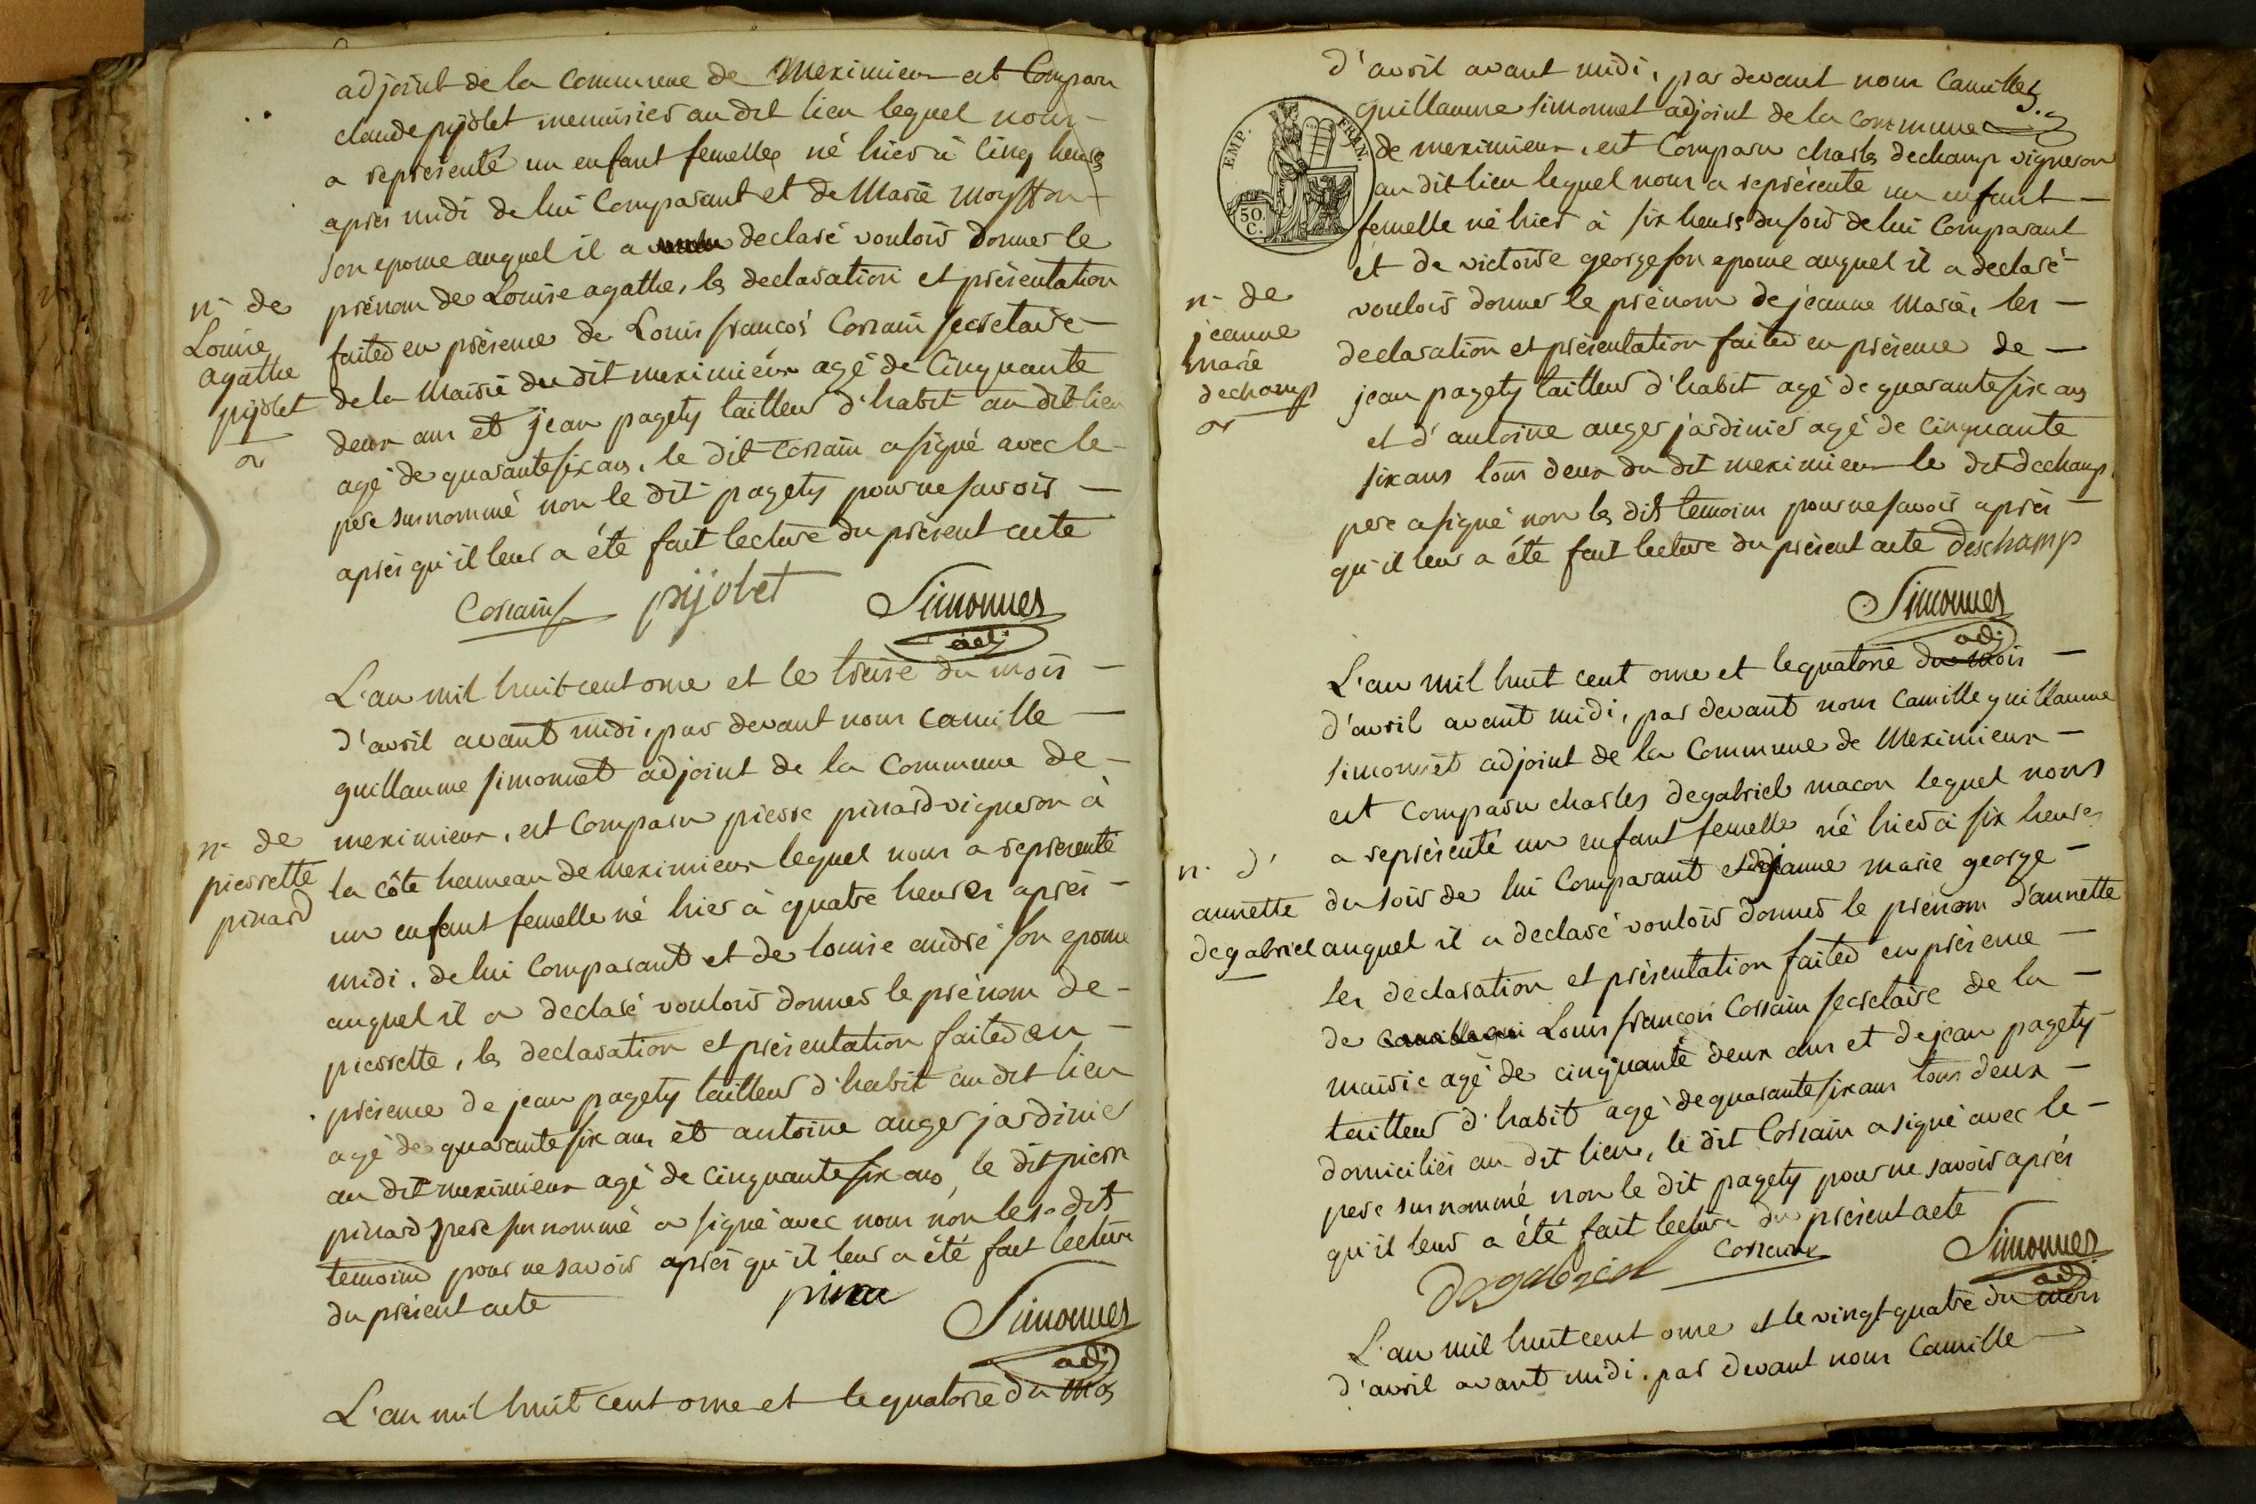 adjoint de la commune de Meximieux est Comparu
claude pijolet menuisier au dit lieu lequel nous
a représenté un enfant femelle né hier à Cinq heures
après midi de lui Comparant et de Marie
son epouse auquel il a declaré vouloir donner le
prénom de Louise agathe, les declaration et présentation
faites en présence de Louis françois Corrain secretaire
de la Mairie du dit meximieux agé de Cinquante
deux ans et jean pagety tailleur d'habit au dit lieu
agé de quarante six ans, le dit Corrain a signé avec le
pere surnommé non le dit pagety pour ne savoir
après qu'il leur a été fait lecture du présent acte
n. de
Louise
agathe
pijolet
Corrain pijolet Simonnet
adj
L'an mil huit cent onze et le treize du mois
d'avril avant midi, par devant nous camille
guillaume simonnet adjoint de la commune de
meximieux, est Comparu pierre pinard vigneron à
la côte hameau de meximieux lequel nous a représenté
un enfant femelle né hier à quatre heures après
midi, de lui Comparant et de louise andré son epouse
auquel il a declaré vouloir donner le prénom de
pierrette, les declaration et présentation faites en
présence de jean pagety tailleur d'habit au dit lieu
agé de quarante six ans et antoine auger jardinier
au dit meximieux agé de cinquante six ans, le dit pierre
pinard pere surnommé a signé avec nous non les dits
temoins pour ne savoir après qu'il leur a été fait lecture
du présent acte
n. de
pierrette
pinard
pina Simonnet
adj
L'an mil huit cent onze et le quatorze du mois
5.
EMP. FRAN.
50.
C.
d'avril avant midi, par devant nous Camille
guillaume simonnet adjoint de la commune
de meximieux, est Comparu charles dechamp vigneron
au dit lieu lequel nous a représenté un enfant
femelle né hier à six heures du soir de lui Comparant
et de victoire george son epouse auquel il a declaré
vouloir donner le prénom de jeanne Marie, les
declaration et présentation faites en présence de
jean pagety tailleur d'habit agé de quarante six ans
et d'antoine auger jardinier agé de cinquante
six ans tous deux du dit meximieux le dit dechamp
pere a signé non les dits temoins pour ne savoir après
qu'il leur a été fait lecture du présent acte deschamp
n. de
jeanne
marie
dechamp
Simonnet
adj
L'an mil huit cent onze et le quatorze du mois
d'avril avant midi, par devant nous Camille guillaume
simonnet adjoint de la Commune de Meximieux
est Comparu charles degabriel macon lequel nous
a représenté un enfant femelle né hier à six heures
du soir de lui Comparant et de jeanne marie george
auquel il a declaré vouloir donner le prénom d'annette
les declaration et présentation faites en présence
de Louis françois Corrain secretaire de la
mairie agé de cinquante deux ans et de jean pagety
tailleur d'habit agé de quarante six ans tous deux
domiciliés au dit lieu, le dit Corrain a signé avec le
pere surnommé non le dit pagety pour ne savoir après
qu'il leur a été fait lecture du présent acte
n. d'
annette
degabriel
Degabriel Corrain Simonnet
adj
L'an mil huit cent onze et le vingt quatre du mois
d'avril avant midi, par devant nous Camille